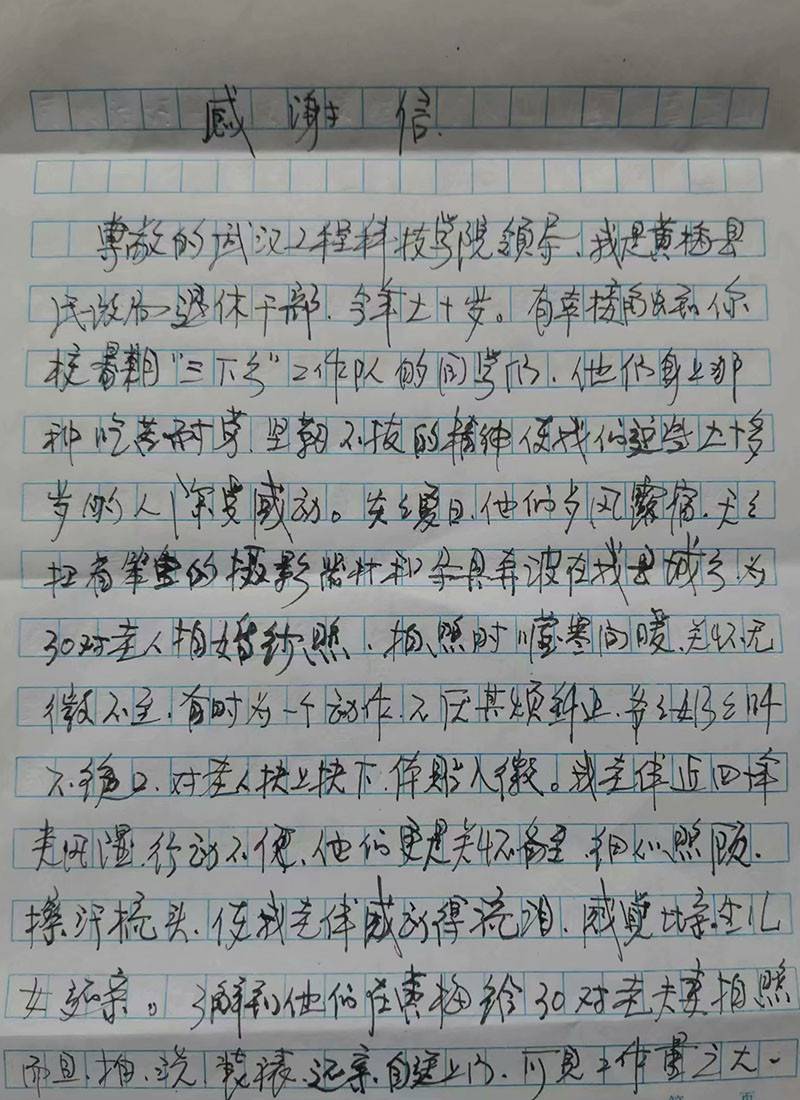 感谢信.
尊敬的武汉工程科技学院领导、我是黄梅县
民政局退休干部.今年七十岁。有幸接触到你
校暑期"三下乡"工作队的同学们.他们身上那
种吃苦耐劳.坚韧不拔的精神使我们这些七十多
岁的人深受感动。炎炎夏日.他们歺风露宿.天天
扛着笨重的摄影器材和道具奔波在我县城乡.为
30对老人拍婚纱照.拍照时嘘寒问暖.关怀无
微不至.有时为一个动作.不厌其烦纠正.爷爷奶奶叫
不绝口.对老人扶上扶下.体贴入微。我老伴近四年
类风湿.行动不便.他们更是关怀备至.细心照顾.
擦汗梳头.使我老伴感动得流泪.感觉比亲生儿
女还亲。了解到他们在黄梅给30对老夫妻拍照
而且.拍.洗.装裱.还亲自送上门.可见工作量之大、
页